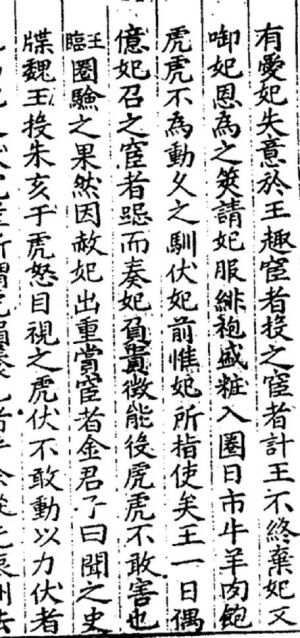 有愛妃失意於王趣宦者投之宦者計王不終棄妃又
啣妃恩為之筴請妃服緋袍盛粧入圈日市牛羊肉飽
虎虎不為動久之馴伏妃前惟妃所指使矣王一日偶
億妃召之宦者恐而奏妃貟貴徴能後虎虎不敢害也
王臨圈驗之果然因赦妃出重賞宦者金君子曰聞之史
牒魏王投朱亥于虎怒目視之虎伏不敢動以力伏者